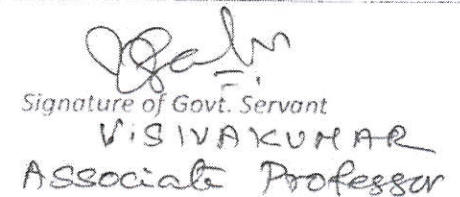 Signature of Govt. Servant
V.SIVAKUMAR
Associate Professor